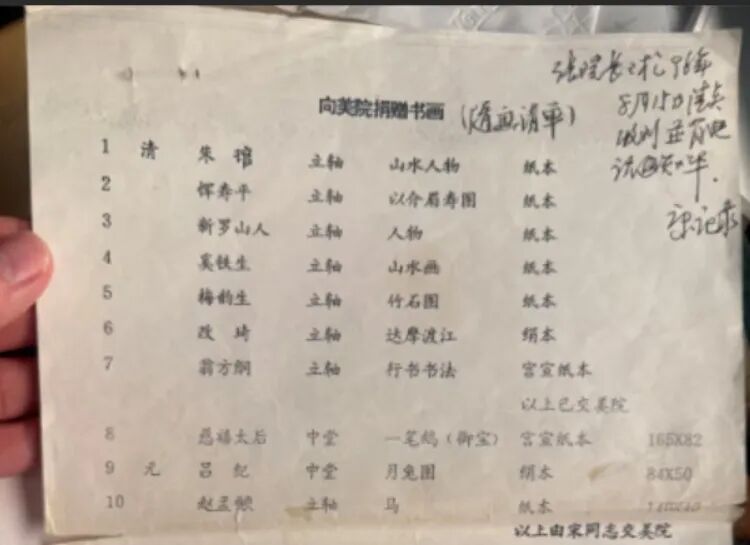 向美院捐赠书画 (清点清单)
张院长
8月15日清点
收到
宋记录
1 清 朱 立轴 山水人物 纸本
2 恽寿平 立轴 以介眉寿图 纸本
3 新罗山人 立轴 人物 纸本
4 奚铁生 立轴 山水画 纸本
5 梅韵生 立轴 竹石图 纸本
6 改 琦 立轴 达摩渡江 绢本
7 翁方纲 立轴 行书书法 宫宣纸本
以上已交美院
8 慈禧太后 中堂 一笔鹅(御宝) 宫宣纸本 165X82
9 元 吕 纪 中堂 月兔图 绢本 84X50
10 赵孟頫 立轴 马 纸本
以上由宋同志交美院